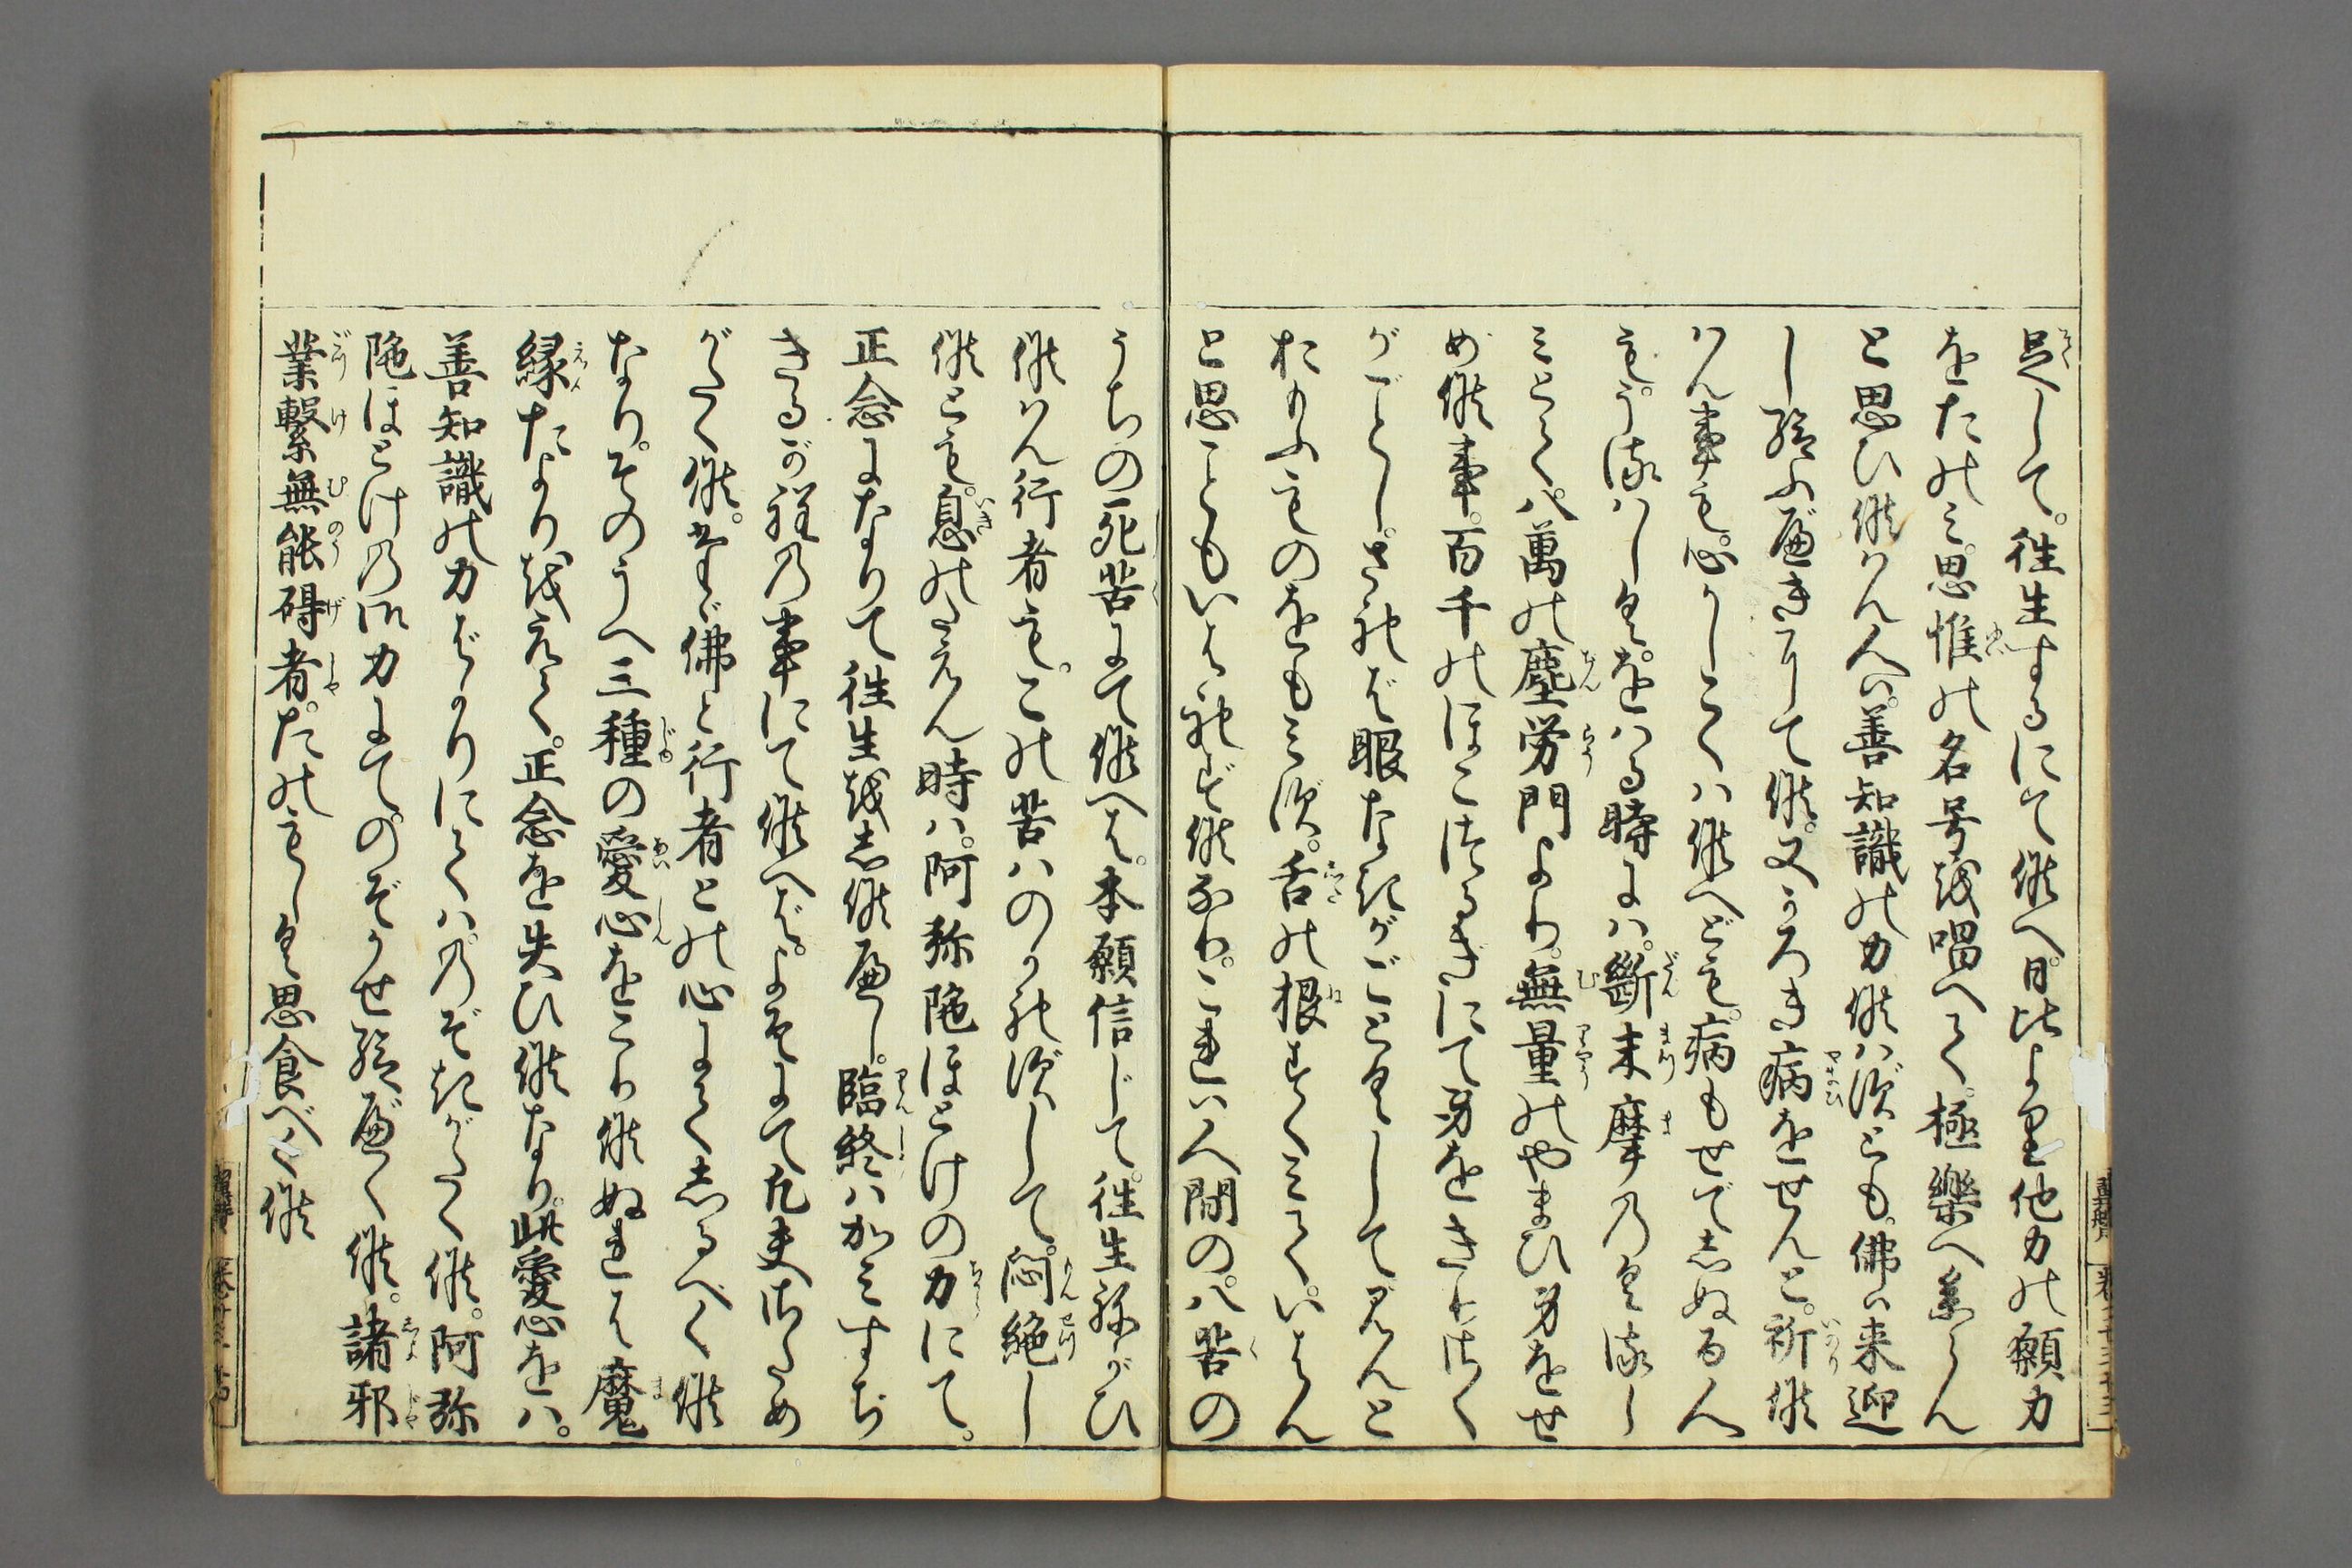 足して。往生するにて候へ。日比より他力の願力
をたのみ。思惟の名号を唱へて。極樂へ参らん
と思ひ候はん人は。善知識の力候はずとも。佛は来迎
し給ふべきにて候。又かろき病をせんと。祈候
はん事も。心かしこくは候へども。病もせで志ぬる人
も。うるはしくをはる時には。斷末摩のくるし
みとて。八萬の塵労門より。無量のやまひ身をせ
め候事。百千のほこつるぎにて身をきりさく
がごとし。されば眼なきがごとくして見んと
おもふものをもみず。舌の根すくみて。いはん
と思こともいはれず候なり。これは人間の。八苦の
うちの死苦にて候へば。本願信じて。往生ねがひ
候はん行者も。この苦はのがれずして。悶絶し
候とも。息のたえん時は。阿弥陀ほとけの力にて。
正念になりて往生を志候べし。臨終はかみすぢ
きるが程の事にて候へば。よそにて凡夫さだめ
がたく候。たゞ佛と行者との心にて志るべく候
なり。そのうへ三種の愛心をこり候ぬれば魔
縁たよりをえて。正念を失ひ候なり。此愛心をば。
善知識の力ばかりにては。のぞきがたく候。阿弥
陁ほとけの御力にて。のぞかせ給べく候。諸邪
業繋無能碍者。たのもしく思食べく候